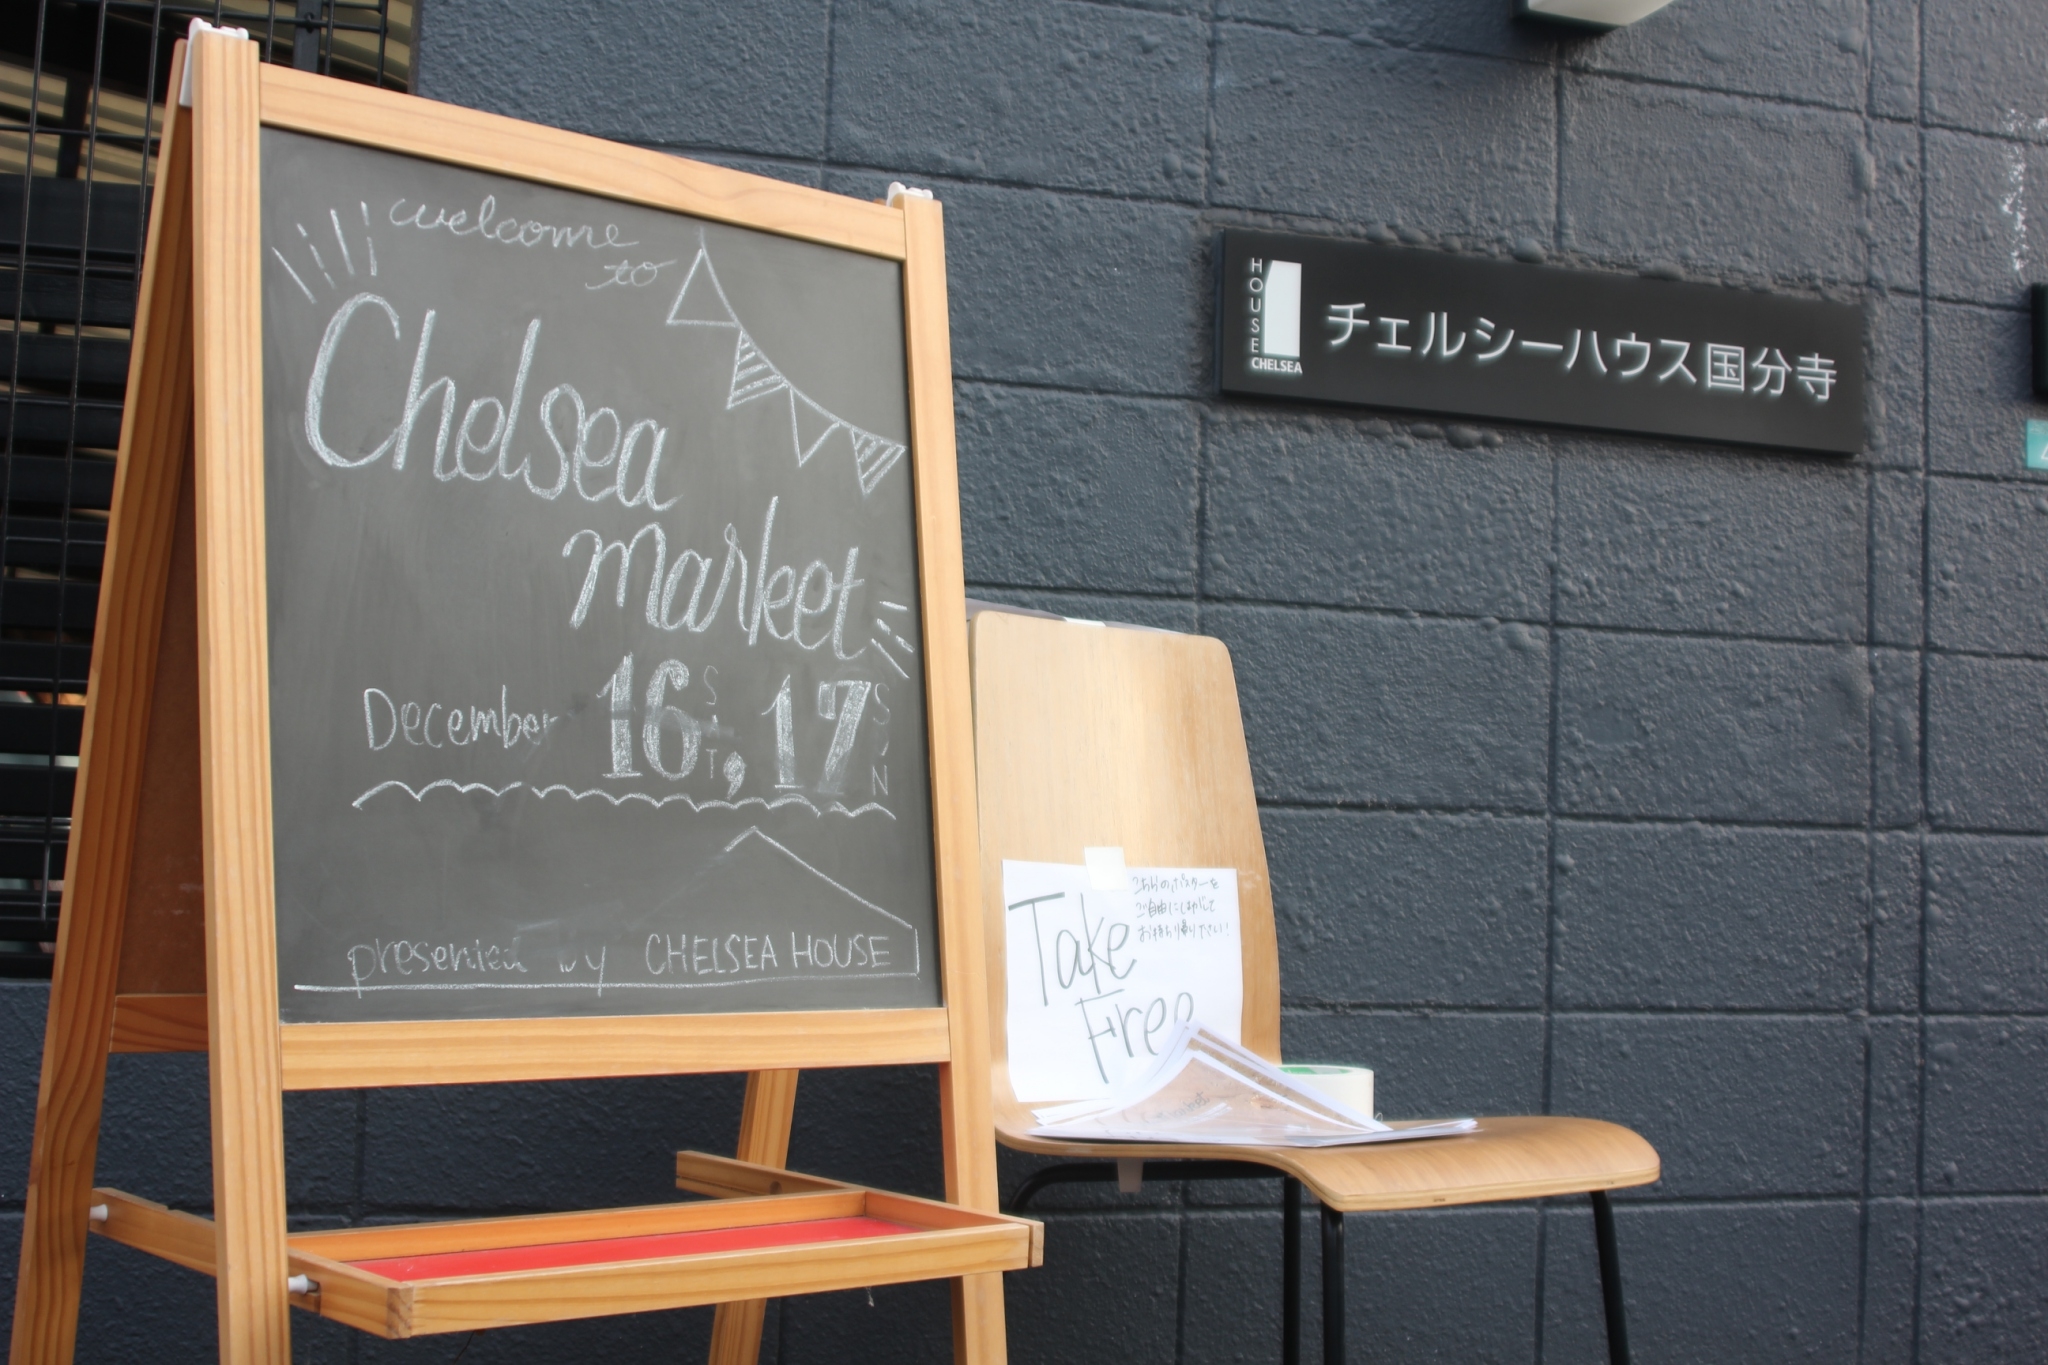 welcome
to
Chelsea
market
December 16 SAT, 17 SUN
presented by CHELSEA HOUSE
HOUSE
CHELSEA
チェルシーハウス国分寺
Take
Free
こちらのポスターを
ご自由に
お持ち帰りください!